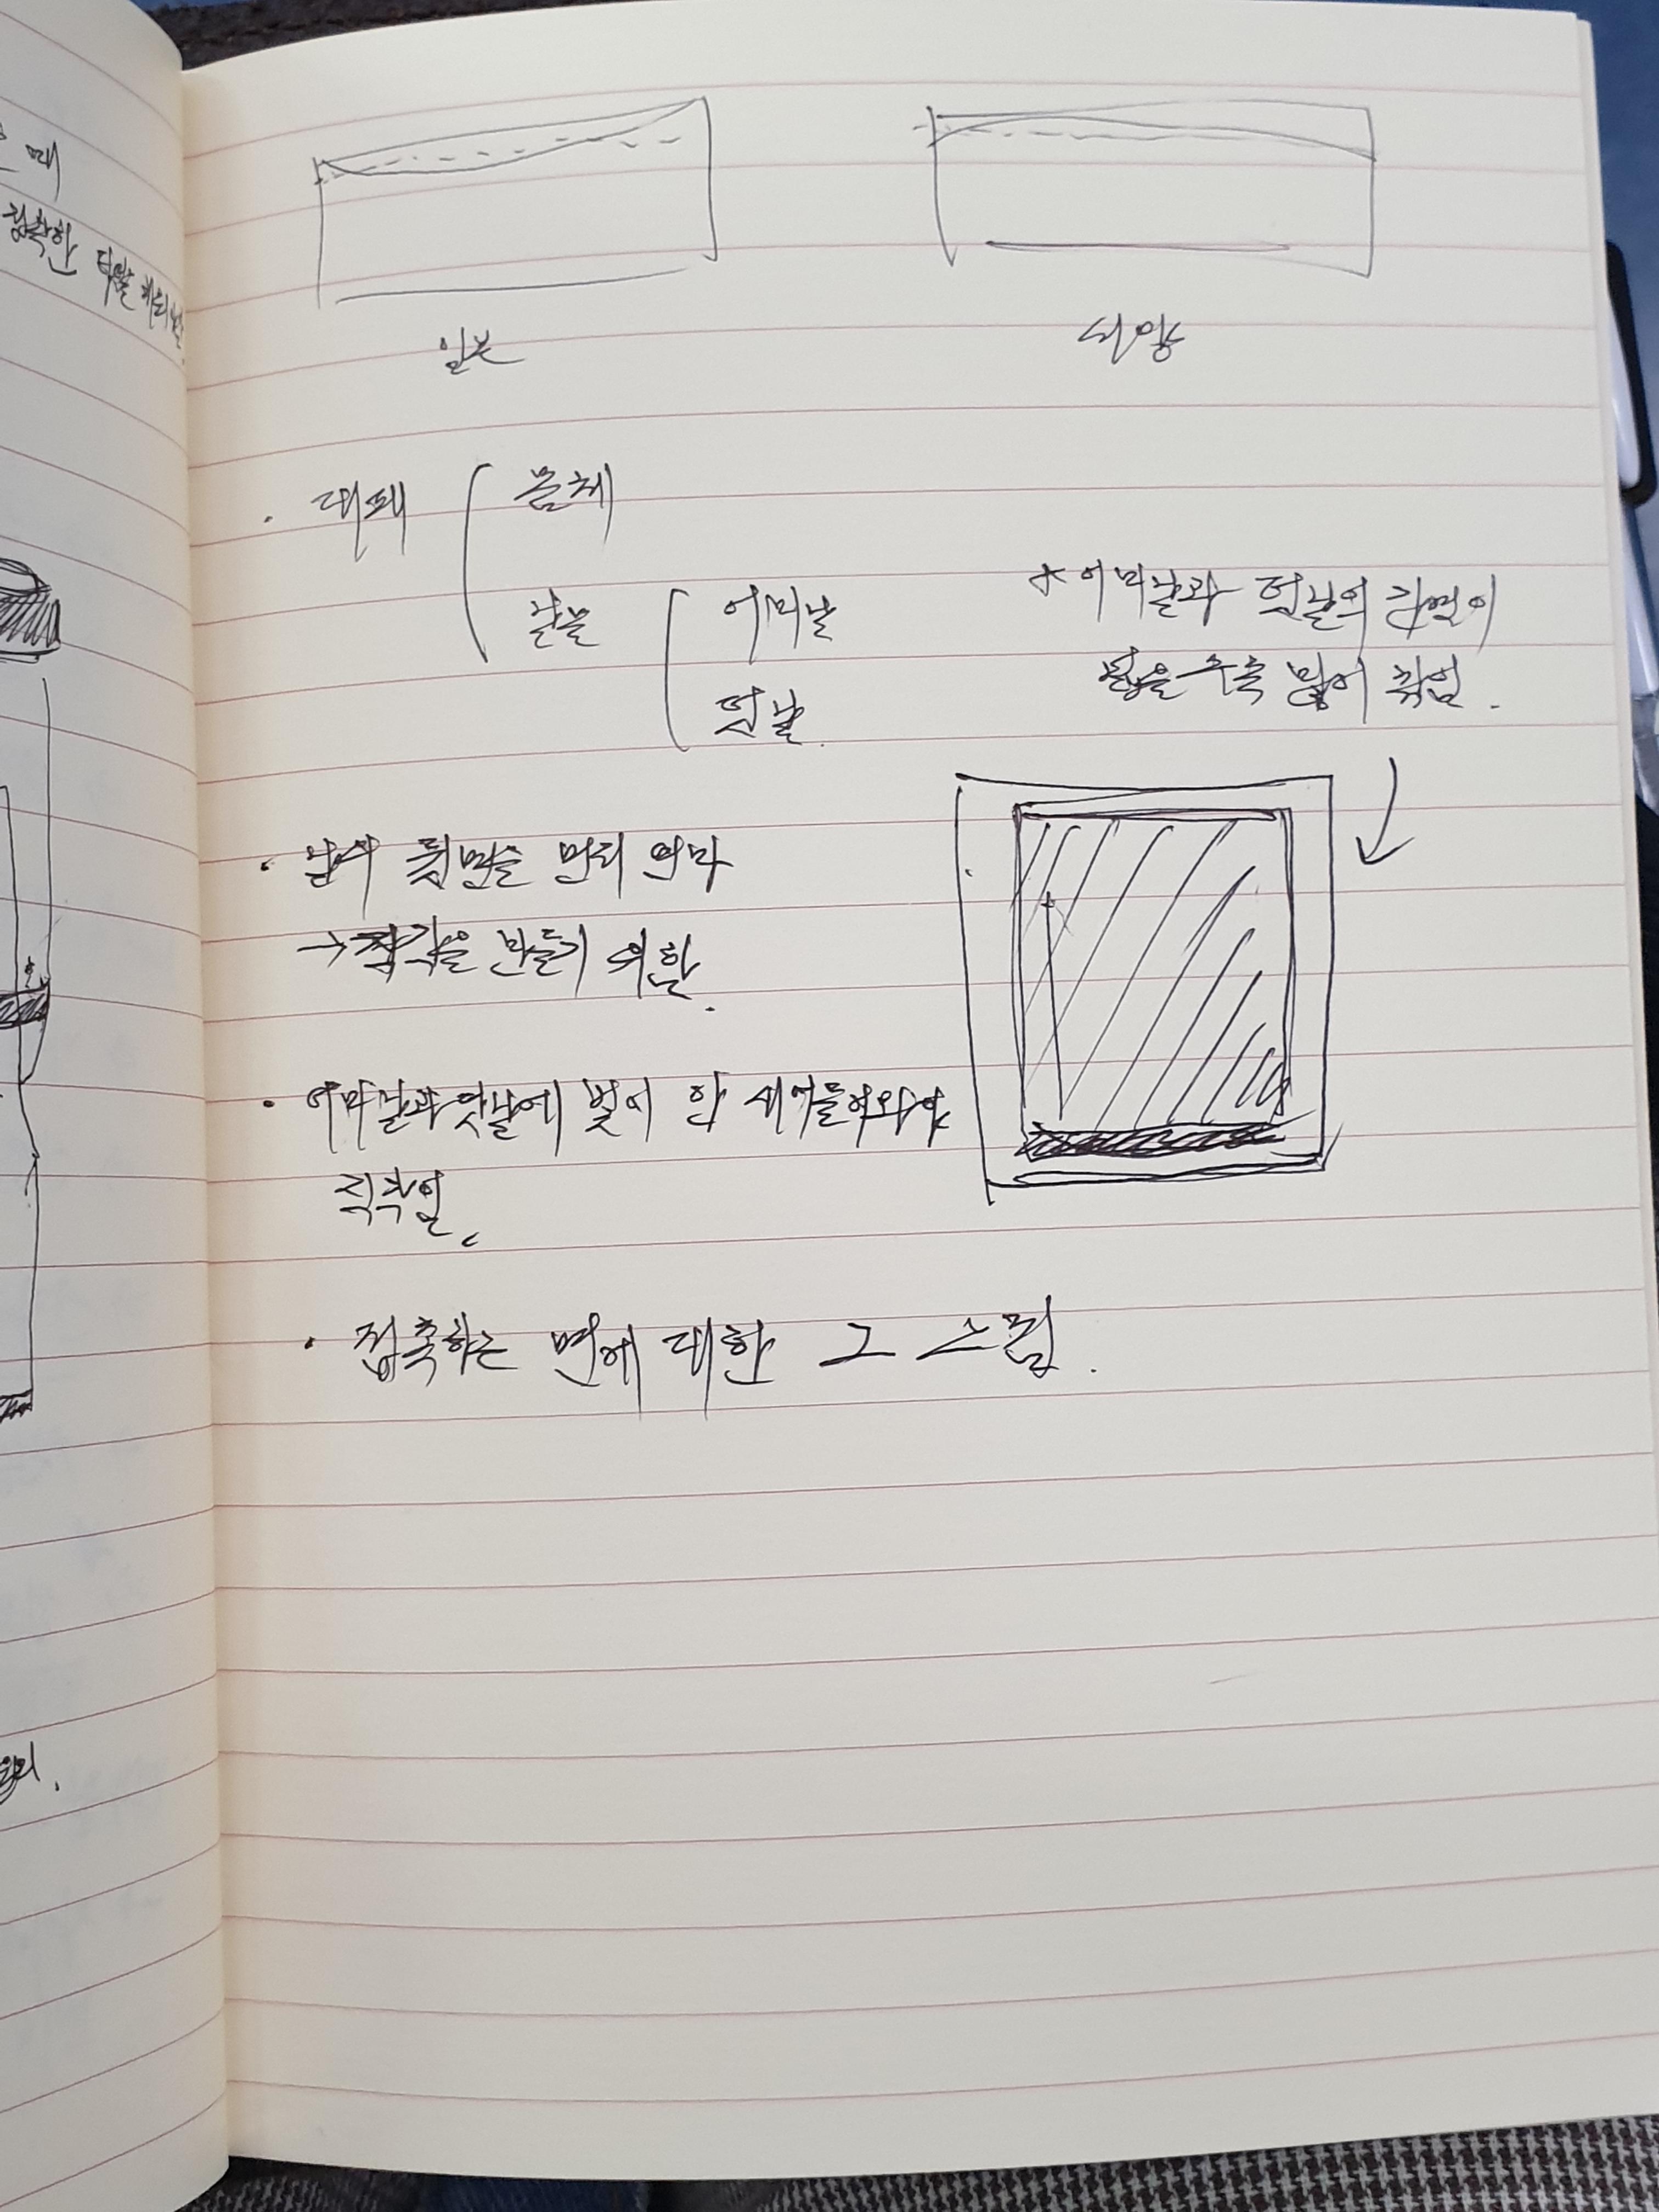 일본
서양
· 대패
몸체
날물
어미날
덧날.
* 어미날과 덧날의 간격이
좁을수록 많이 취임.
· 날의 뒷면을 먼저 연마
→ 직각을 만들기 위함.
· 어미날과 덧날에 빛이 안 새어들어와야
직각임.
· 접촉하는 면에 대한 그 느낌.